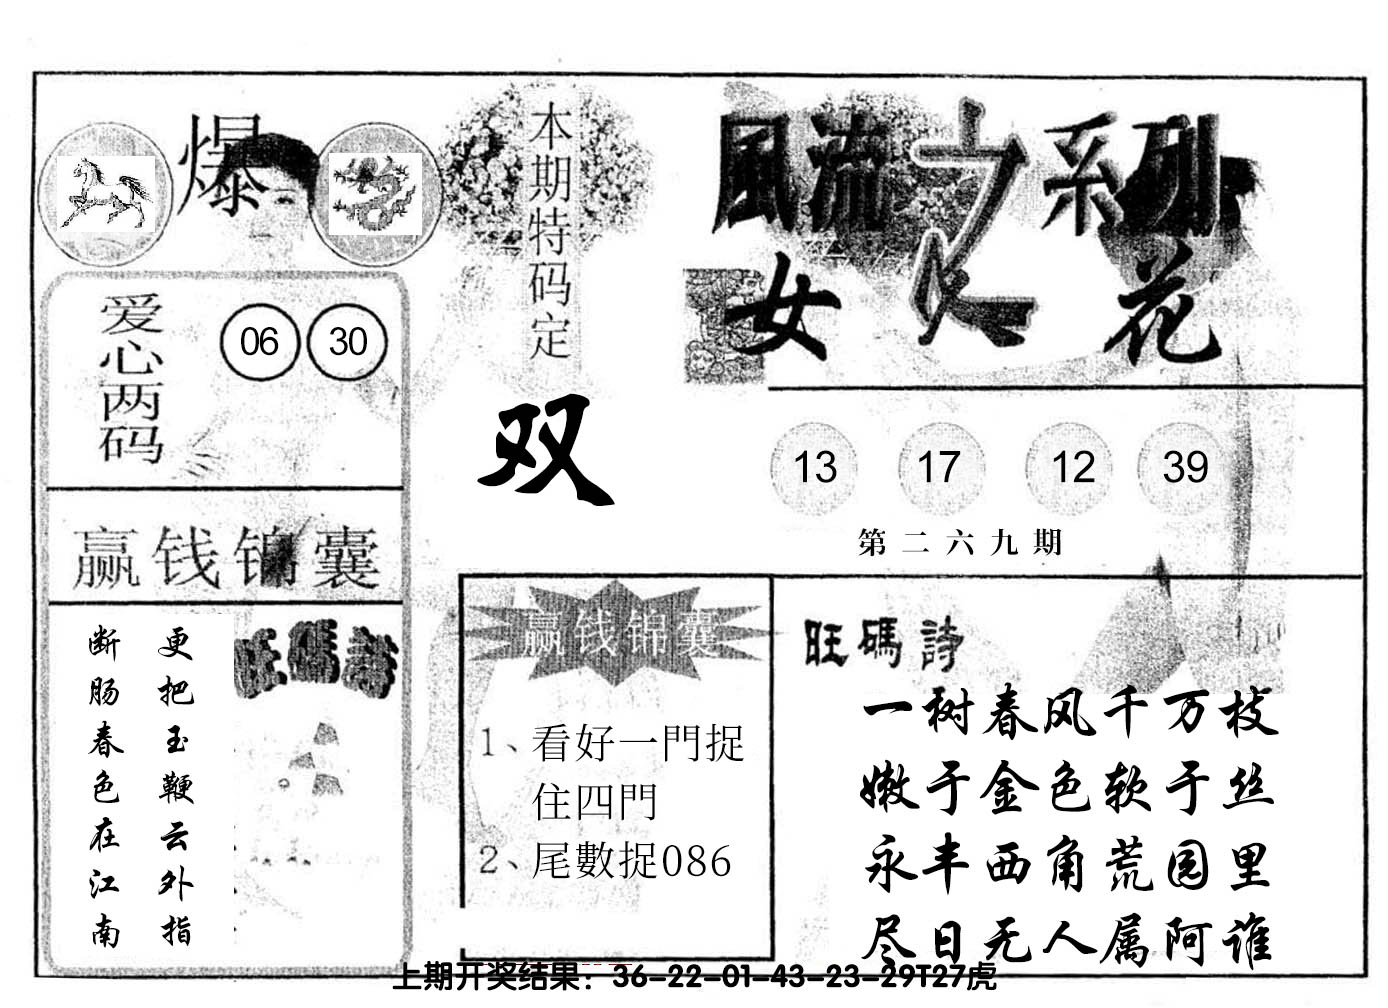 爆
本期特码定
双
風流之系列
女人花
爱心两码
06 30
13 17 12 39
第二六九期
赢钱锦囊
更把玉鞭云外指
断肠春色在江南
旺碼詩
赢钱锦囊
1、看好一門捉
住四門
2、尾數捉086
旺碼詩
一树春风千万枝
嫩于金色软于丝
永丰西角荒园里
尽日无人属阿谁
上期开奖结果：36-22-01-43-23-29T27虎